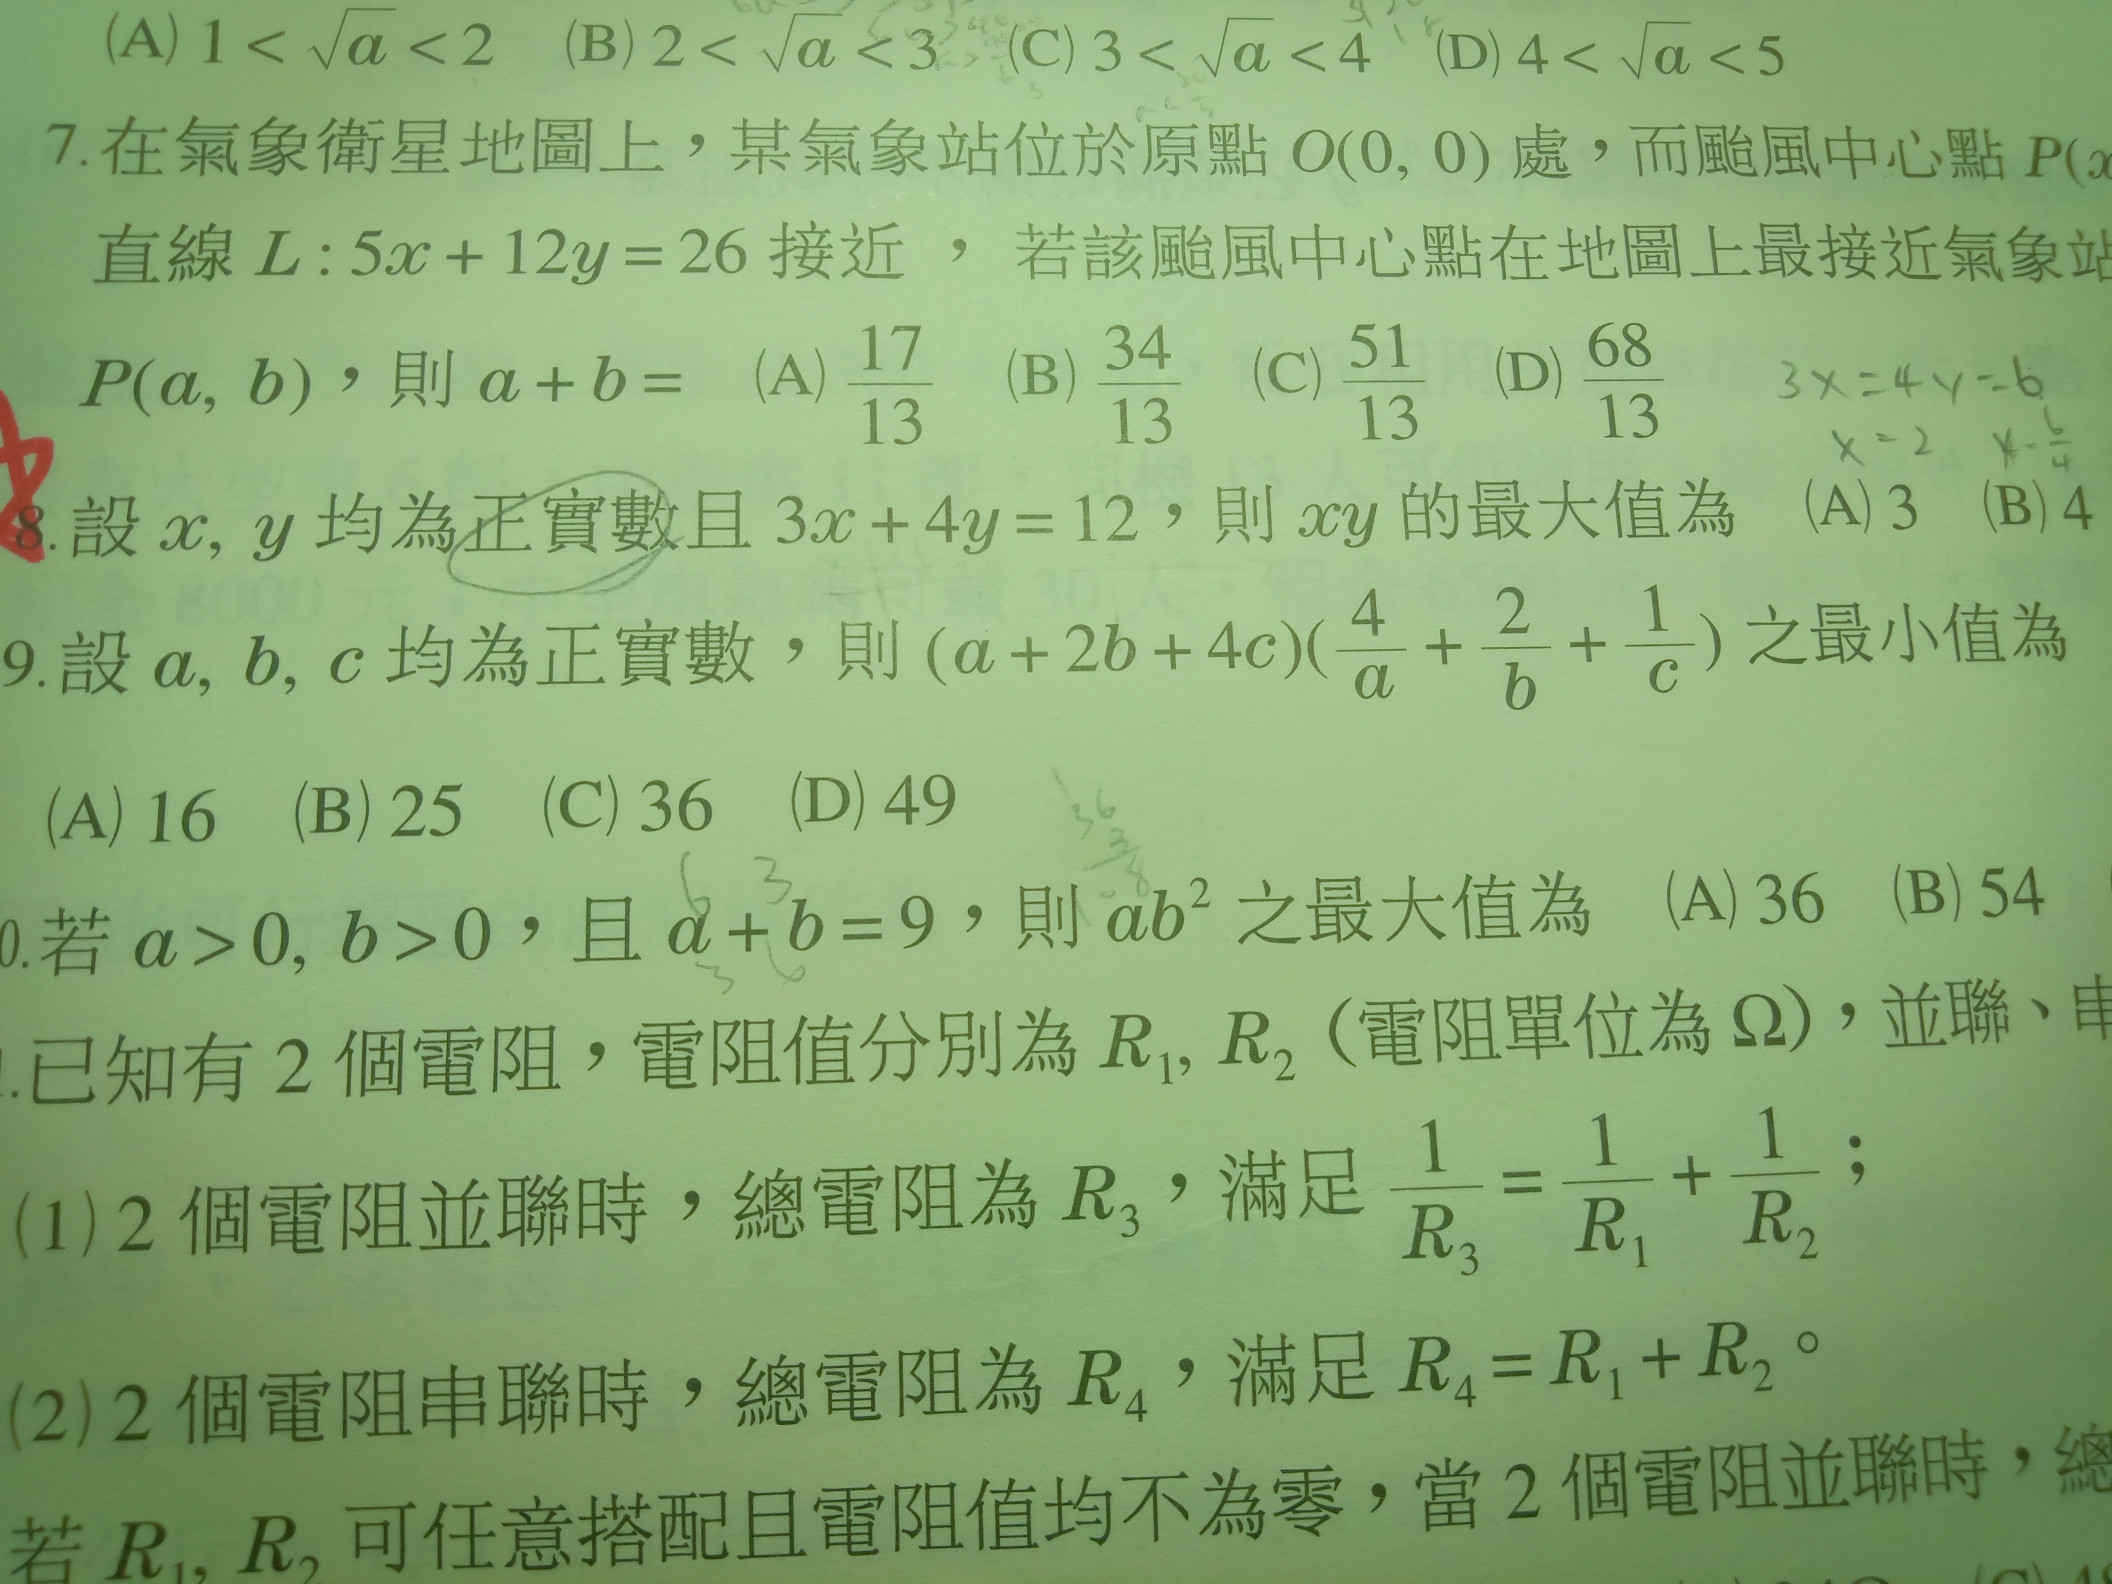 (A) 1 < √a < 2 (B) 2 < √a < 3 (C) 3 < √a < 4 (D) 4 < √a < 5
7. 在氣象衛星地圖上，某氣象站位於原點 O(0, 0) 處，而颱風中心點 P(x
直線 L : 5x + 12y = 26 接近 ， 若該颱風中心點在地圖上最接近氣象站
P(a, b)，則 a + b = (A) 17/13 (B) 34/13 (C) 51/13 (D) 68/13
3x = 4y = 6
x = 2
8. 設 x, y 均為正實數且 3x + 4y = 12，則 xy 的最大值為 (A) 3 (B) 4
9. 設 a, b, c 均為正實數，則 (a + 2b + 4c)(4/a + 2/b + 1/c) 之最小值為
(A) 16 (B) 25 (C) 36 (D) 49
6 3
0. 若 a > 0, b > 0，且 a + b = 9，則 ab² 之最大值為 (A) 36 (B) 54
3 6
. 已知有 2 個電阻，電阻值分別為 R₁, R₂（電阻單位為 Ω），並聯、串
(1) 2 個電阻並聯時，總電阻為 R₃，滿足 1/R₃ = 1/R₁ + 1/R₂；
(2) 2 個電阻串聯時，總電阻為 R₄，滿足 R₄ = R₁ + R₂。
若 R₁, R₂ 可任意搭配且電阻值均不為零，當 2 個電阻並聯時，總